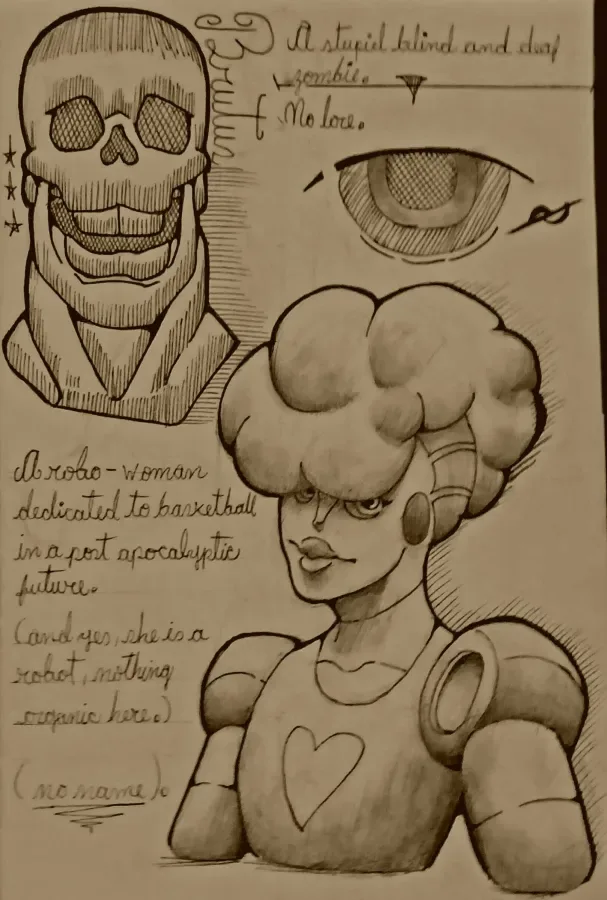 Brutus
A stupid blind and deaf
zombie.
No lore.
A robo-woman
dedicated to basketball
in a post apocalyptic
future.
(and yes, she is a
robot, nothing
organic here.)
(no name).